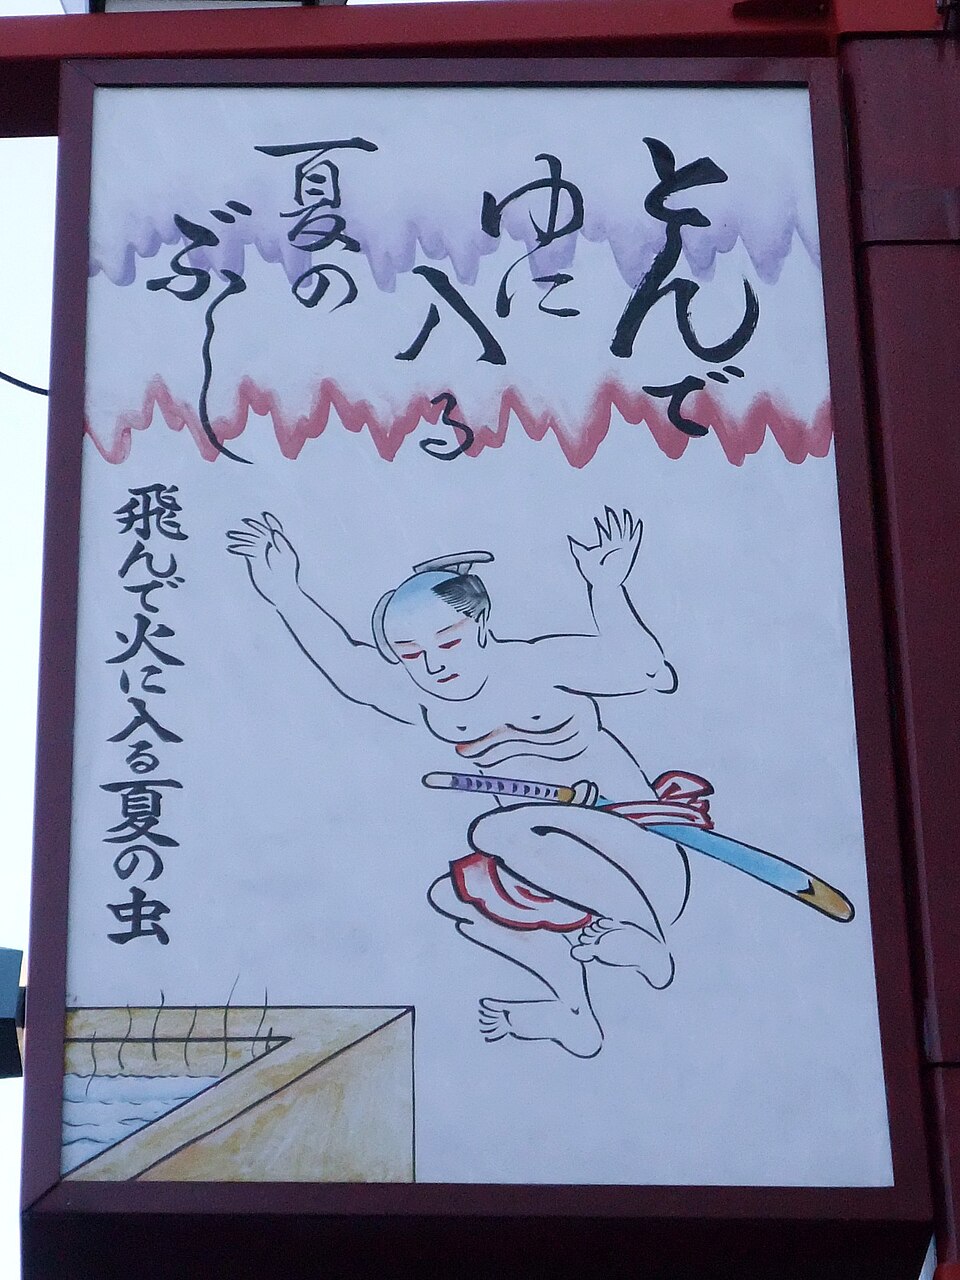 とんで
ゆに
入る
夏の
ぶし
飛んで火に入る夏の虫